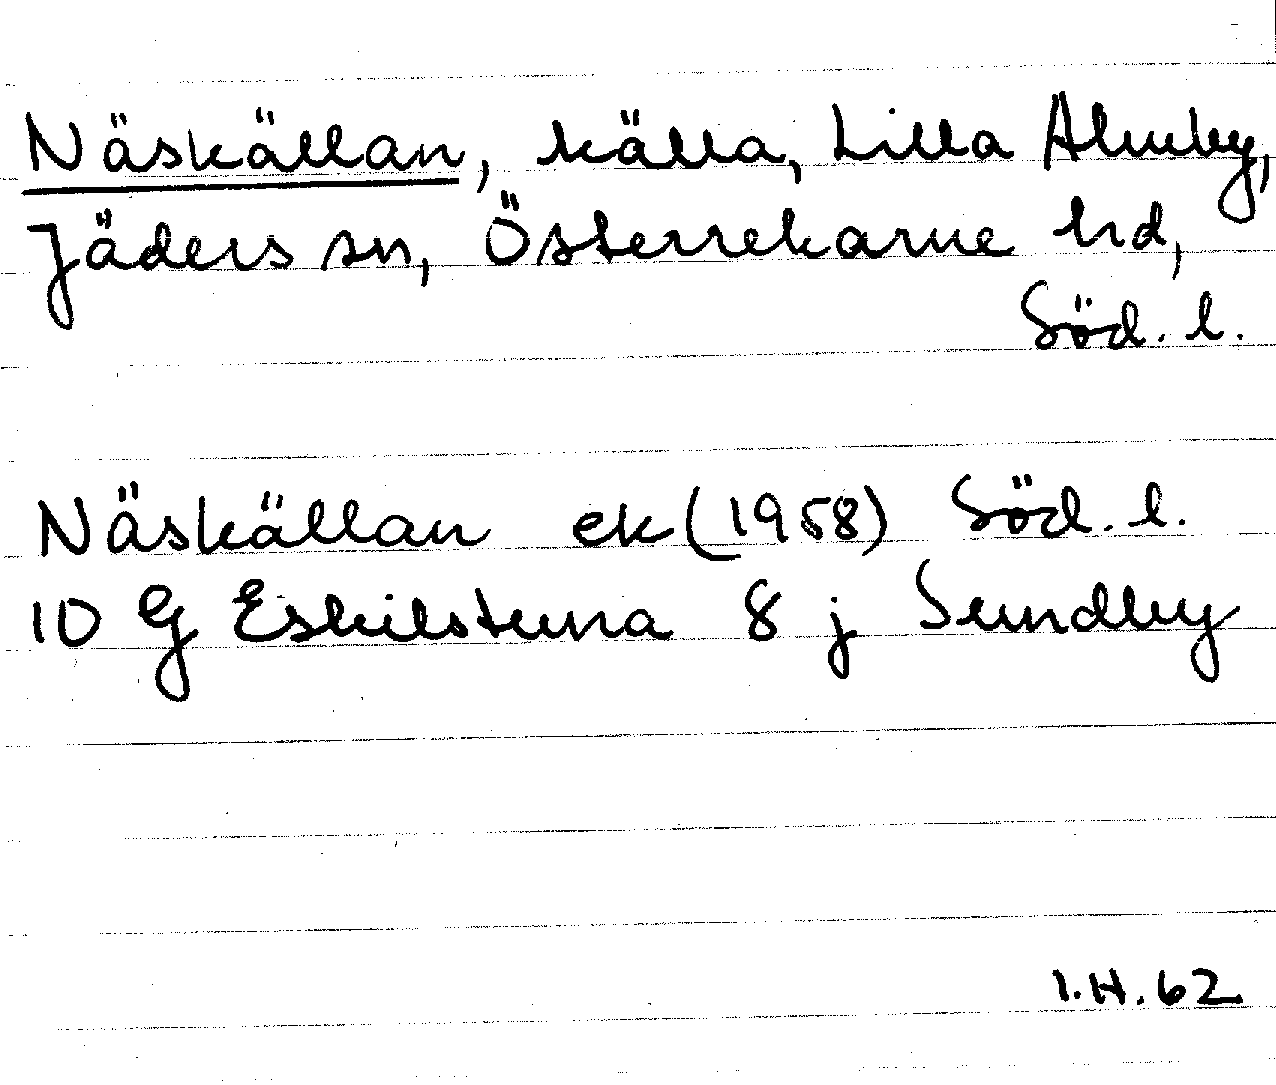 Näskällan, källa, Lilla Almby,
Jäders sn, Österrekarne hd,
Söd. l.
Näskällan ek (1958) Söd. l.
10 G Eskilstuna 8 j Sundby
I.H. 62